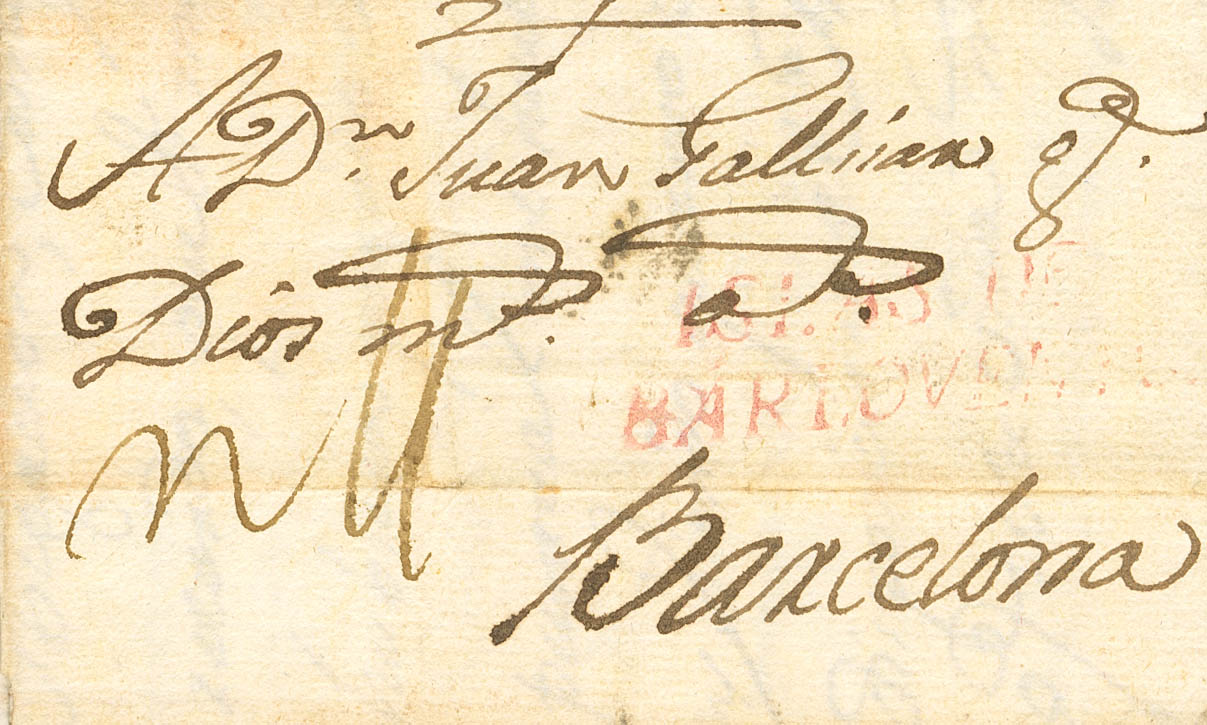 A Dn. Juan Gallinan qe.
Dios me. as.
ISLAS DE
BARLOVENTO
Barcelona